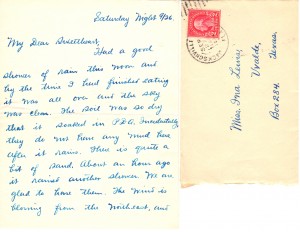 Saturday Night 9/26.
My Dear Sweetheart,
Had a good
shower of rain this noon and
by the time I had finished eating
it was all over and the sky
was clear. The soil was so dry
that it soaked in P.D.Q. Incidentally
they do not have any mud here
after it rains. There is quite a
bit of sand. About an hour ago
it rained another shower. We are
glad to have them. The wind is
blowing from the Northeast, and
Miss Ina Lewis,
Uvalde,
Texas.
Box 284